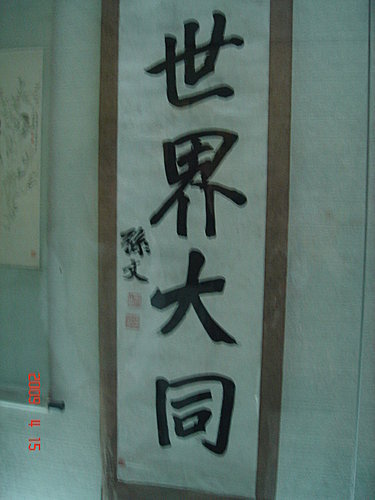 世界大同
孫文
2009 4 15